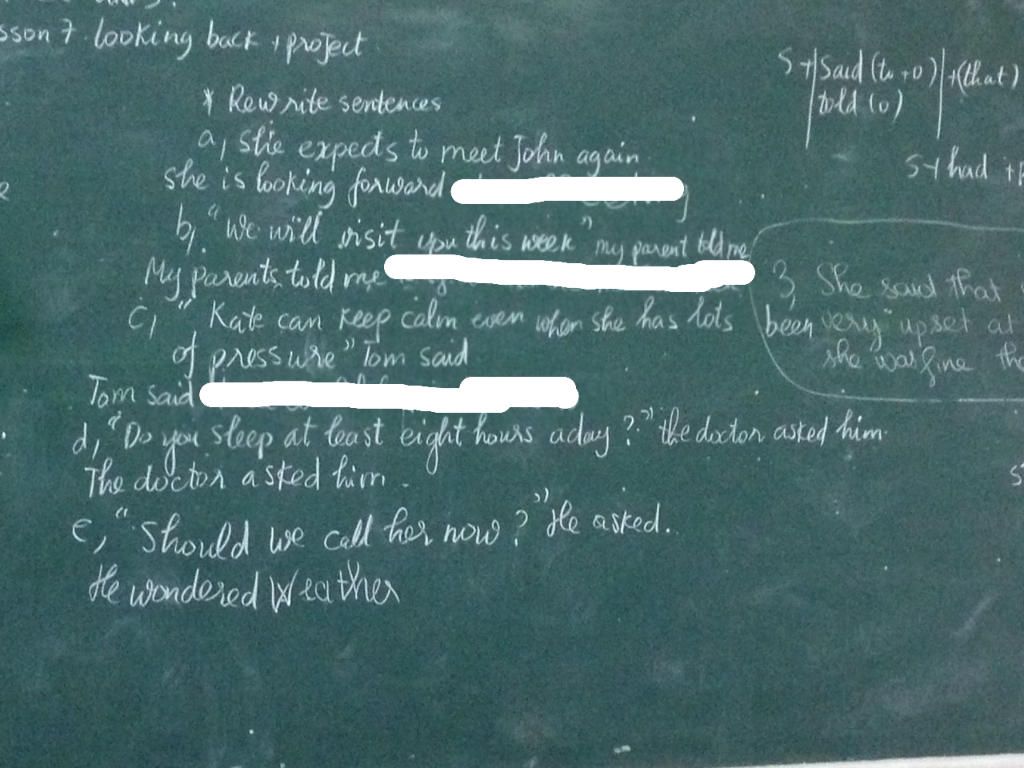 sson 7 looking back + project
* Rewrite sentences
a, she expects to meet John again
she is looking forward
b, "We will visit you this week" my parent told me
My parents told me
c, "Kate can keep calm even when she has lots
of pressure" Tom said
Tom said
d, "Do you sleep at least eight hours a day?" the doctor asked him.
The doctor asked him.
e, "Should we call her now?" He asked.
He wondered Weather
S+ said (to +O) +(that)
told (O)
S+ had +
3, She said that
been very upset at
she was fine the